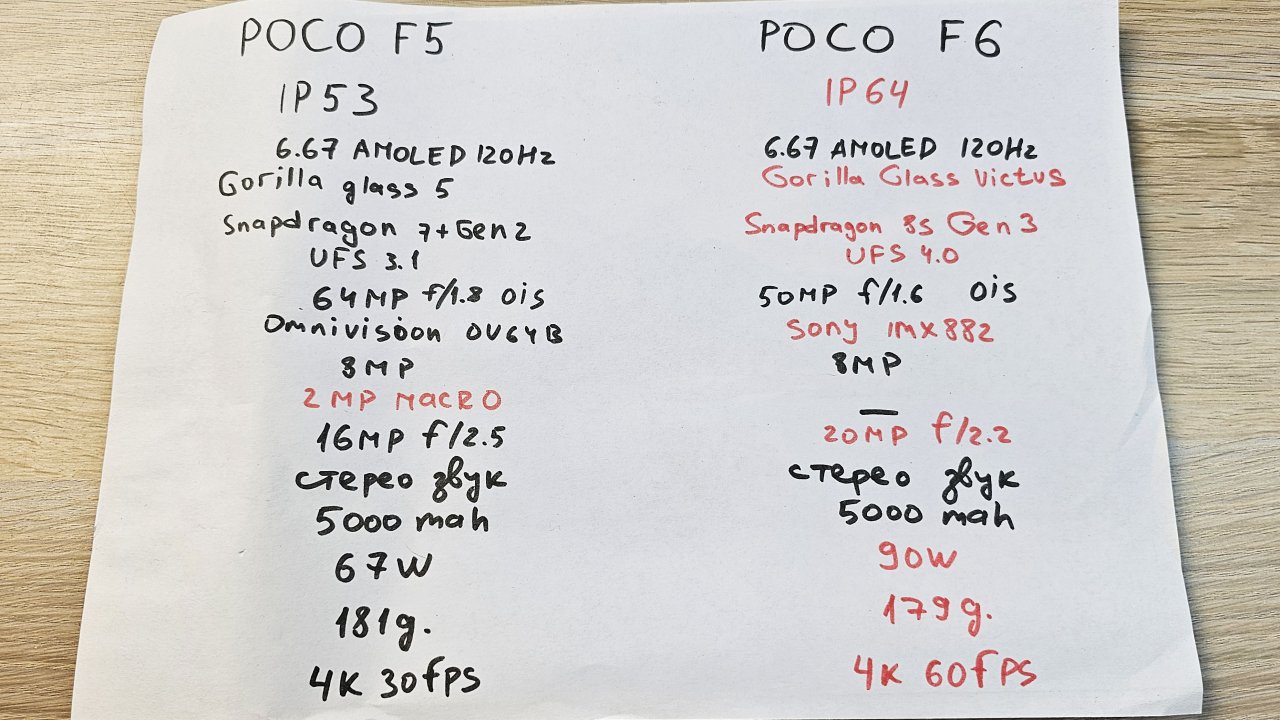 POCO F5
IP53
6.67 AMOLED 120Hz
Gorilla glass 5
Snapdragon 7+Gen2
UFS 3.1
64MP f/1.8 ois
Omnivision OV64B
8MP
2MP MACRO
16MP f/2.5
стерео звук
5000 mah
67W
181g.
4K 30fps
POCO F6
IP64
6.67 AMOLED 120Hz
Gorilla Glass Victus
Snapdragon 8s Gen3
UFS 4.0
50MP f/1.6 ois
Sony IMX882
8MP
—
20MP f/2.2
стерео звук
5000 mah
90W
179g.
4K 60fps